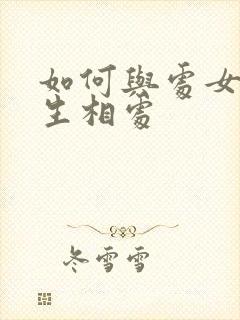 如何與處女
生相處
冬雪雪